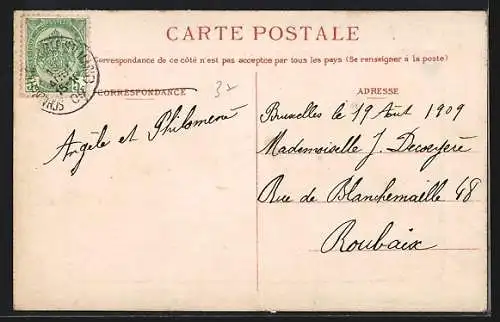 CARTE POSTALE
Correspondance de ce côté n'est pas acceptée par tous les pays (Se renseigner à la poste)
CORRESPONDANCE
ADRESSE
Angèle et Philomène
Bruxelles le 19 Août 1909
Mademoiselle J. Decoeyère
Rue de Blanchemaille 48
Roubaix